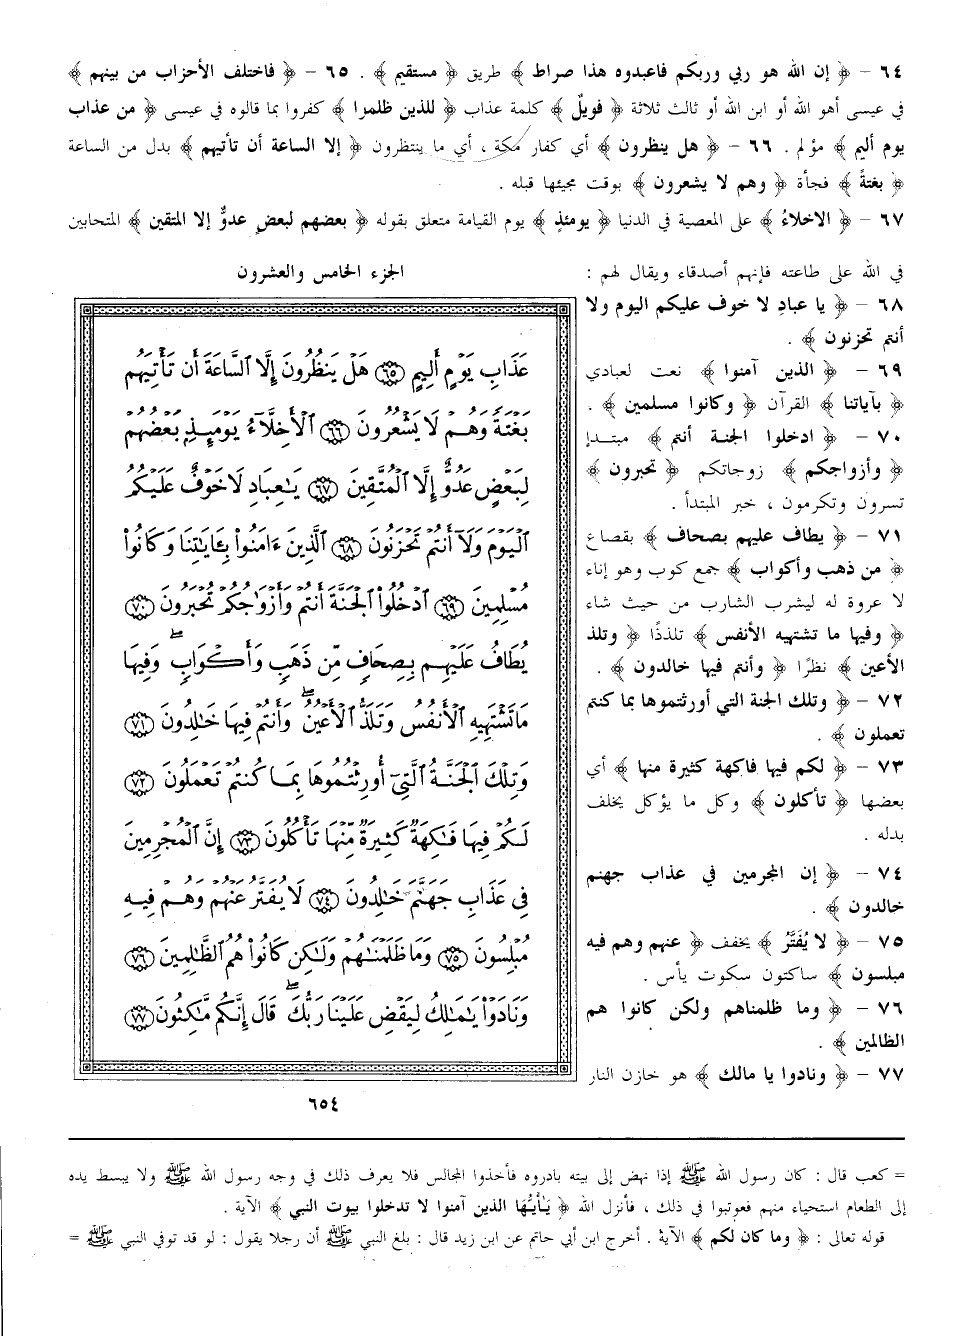 ٦٤ - ﴿ إن الله هو ربي وربكم فاعبدوه هذا صراط ﴾ طريق ﴿ مستقيم ﴾ . ٦٥ - ﴿ فاختلف الأحزاب من بينهم ﴾
في عيسى أهو الله أو ابن الله أو ثالث ثلاثة ﴿ فويلٌ ﴾ كلمة عذاب ﴿ للذين ظلموا ﴾ كفروا بما قالوه في عيسى ﴿ من عذاب
يوم أليم ﴾ مؤلم . ٦٦ - ﴿ هل ينظرون ﴾ أي كفار مكة ، أي ما ينتظرون ﴿ إلا الساعة أن تأتيهم ﴾ بدل من الساعة
﴿ بغتةً ﴾ فجأة ﴿ وهم لا يشعرون ﴾ بوقت مجيئها قبله .
٦٧ - ﴿ الاخلاءُ ﴾ على المعصية في الدنيا ﴿ يومئذٍ ﴾ يوم القيامة متعلق بقوله ﴿ بعضهم لبعضٍ عدوٌ إلا المتقين ﴾ المتحابين
في الله على طاعته فإنهم أصدقاء ويقال لهم :
٦٨ - ﴿ يا عبادِ لا خوف عليكم اليوم ولا
أنتم تحزنون ﴾ .
٦٩ - ﴿ الذين آمنوا ﴾ نعت لعبادي
﴿ بآياتنا ﴾ القرآن ﴿ وكانوا مسلمين ﴾ .
٧٠ - ﴿ ادخلوا الجنة أنتم ﴾ مبتدإ
﴿ وأزواجكم ﴾ زوجاتكم ﴿ تحبرون ﴾
تسرون وتكرمون ، خبر المبتدأ .
٧١ - ﴿ يطاف عليهم بصحاف ﴾ بقصاع
﴿ من ذهب وأكواب ﴾ جمع كوب وهو إناء
لا عروة له ليشرب الشارب من حيث شاء
﴿ وفيها ما تشتهيه الأنفس ﴾ تلذذًا ﴿ وتلذ
الأعين ﴾ نظرًا ﴿ وأنتم فيها خالدون ﴾ .
٧٢ - ﴿ وتلك الجنة التي أورثتموها بما كنتم
تعملون ﴾ .
٧٣ - ﴿ لكم فيها فاكهة كثيرة منها ﴾ أي
بعضها ﴿ تأكلون ﴾ وكل ما يؤكل يخلف
بدله .
٧٤ - ﴿ إن المجرمين في عذاب جهنم
خالدون ﴾ .
٧٥ - ﴿ لا يُفَتَّرُ ﴾ يخفف ﴿ عنهم وهم فيه
مبلسون ﴾ ساكتون سكوت يأس .
٧٦ - ﴿ وما ظلمناهم ولكن كانوا هم
الظالمين ﴾ .
٧٧ - ﴿ ونادوا يا مالك ﴾ هو خازن النار
الجزء الخامس والعشرون
عَذَابِ يَوْمٍ أَلِيمٍ ٦٥ هَلْ يَنظُرُونَ إِلَّا ٱلسَّاعَةَ أَن تَأْتِيَهُم
بَغْتَةً وَهُمْ لَا يَشْعُرُونَ ٦٦ ٱلْأَخِلَّآءُ يَوْمَئِذٍ بَعْضُهُمْ
لِبَعْضٍ عَدُوٌّ إِلَّا ٱلْمُتَّقِينَ ٦٧ يَٰعِبَادِ لَا خَوْفٌ عَلَيْكُمُ
ٱلْيَوْمَ وَلَآ أَنتُمْ تَحْزَنُونَ ٦٨ ٱلَّذِينَ ءَامَنُوا۟ بِـَٔايَٰتِنَا وَكَانُوا۟
مُسْلِمِينَ ٦٩ ٱدْخُلُوا۟ ٱلْجَنَّةَ أَنتُمْ وَأَزْوَٰجُكُمْ تُحْبَرُونَ ٧٠
يُطَافُ عَلَيْهِم بِصِحَافٍ مِّن ذَهَبٍ وَأَكْوَابٍ ۖ وَفِيهَا
مَا تَشْتَهِيهِ ٱلْأَنفُسُ وَتَلَذُّ ٱلْأَعْيُنُ ۖ وَأَنتُمْ فِيهَا خَٰلِدُونَ ٧١
وَتِلْكَ ٱلْجَنَّةُ ٱلَّتِىٓ أُورِثْتُمُوهَا بِمَا كُنتُمْ تَعْمَلُونَ ٧٢
لَكُمْ فِيهَا فَٰكِهَةٌ كَثِيرَةٌ مِّنْهَا تَأْكُلُونَ ٧٣ إِنَّ ٱلْمُجْرِمِينَ
فِى عَذَابِ جَهَنَّمَ خَٰلِدُونَ ٧٤ لَا يُفَتَّرُ عَنْهُمْ وَهُمْ فِيهِ
مُبْلِسُونَ ٧٥ وَمَا ظَلَمْنَٰهُمْ وَلَٰكِن كَانُوا۟ هُمُ ٱلظَّٰلِمِينَ ٧٦
وَنَادَوْا۟ يَٰمَٰلِكُ لِيَقْضِ عَلَيْنَا رَبُّكَ ۖ قَالَ إِنَّكُم مَّٰكِثُونَ ٧٧
٦٥٤
= كعب قال : كان رسول الله ﷺ إذا نهض إلى بيته بادروه فأخذوا المجالس فلا يعرف ذلك في وجه رسول الله ﷺ ولا يبسط يده
إلى الطعام استحياء منهم فعوتبوا في ذلك ، فأنزل الله ﴿ يَٰأَيُّهَا الذين آمنوا لا تدخلوا بيوت النبي ﴾ الآية .
قوله تعالى : ﴿ وما كان لكم ﴾ الآية . أخرج ابن أبي حاتم عن ابن زيد قال : بلغ النبي ﷺ أن رجلا يقول : لو قد توفي النبي ﷺ =